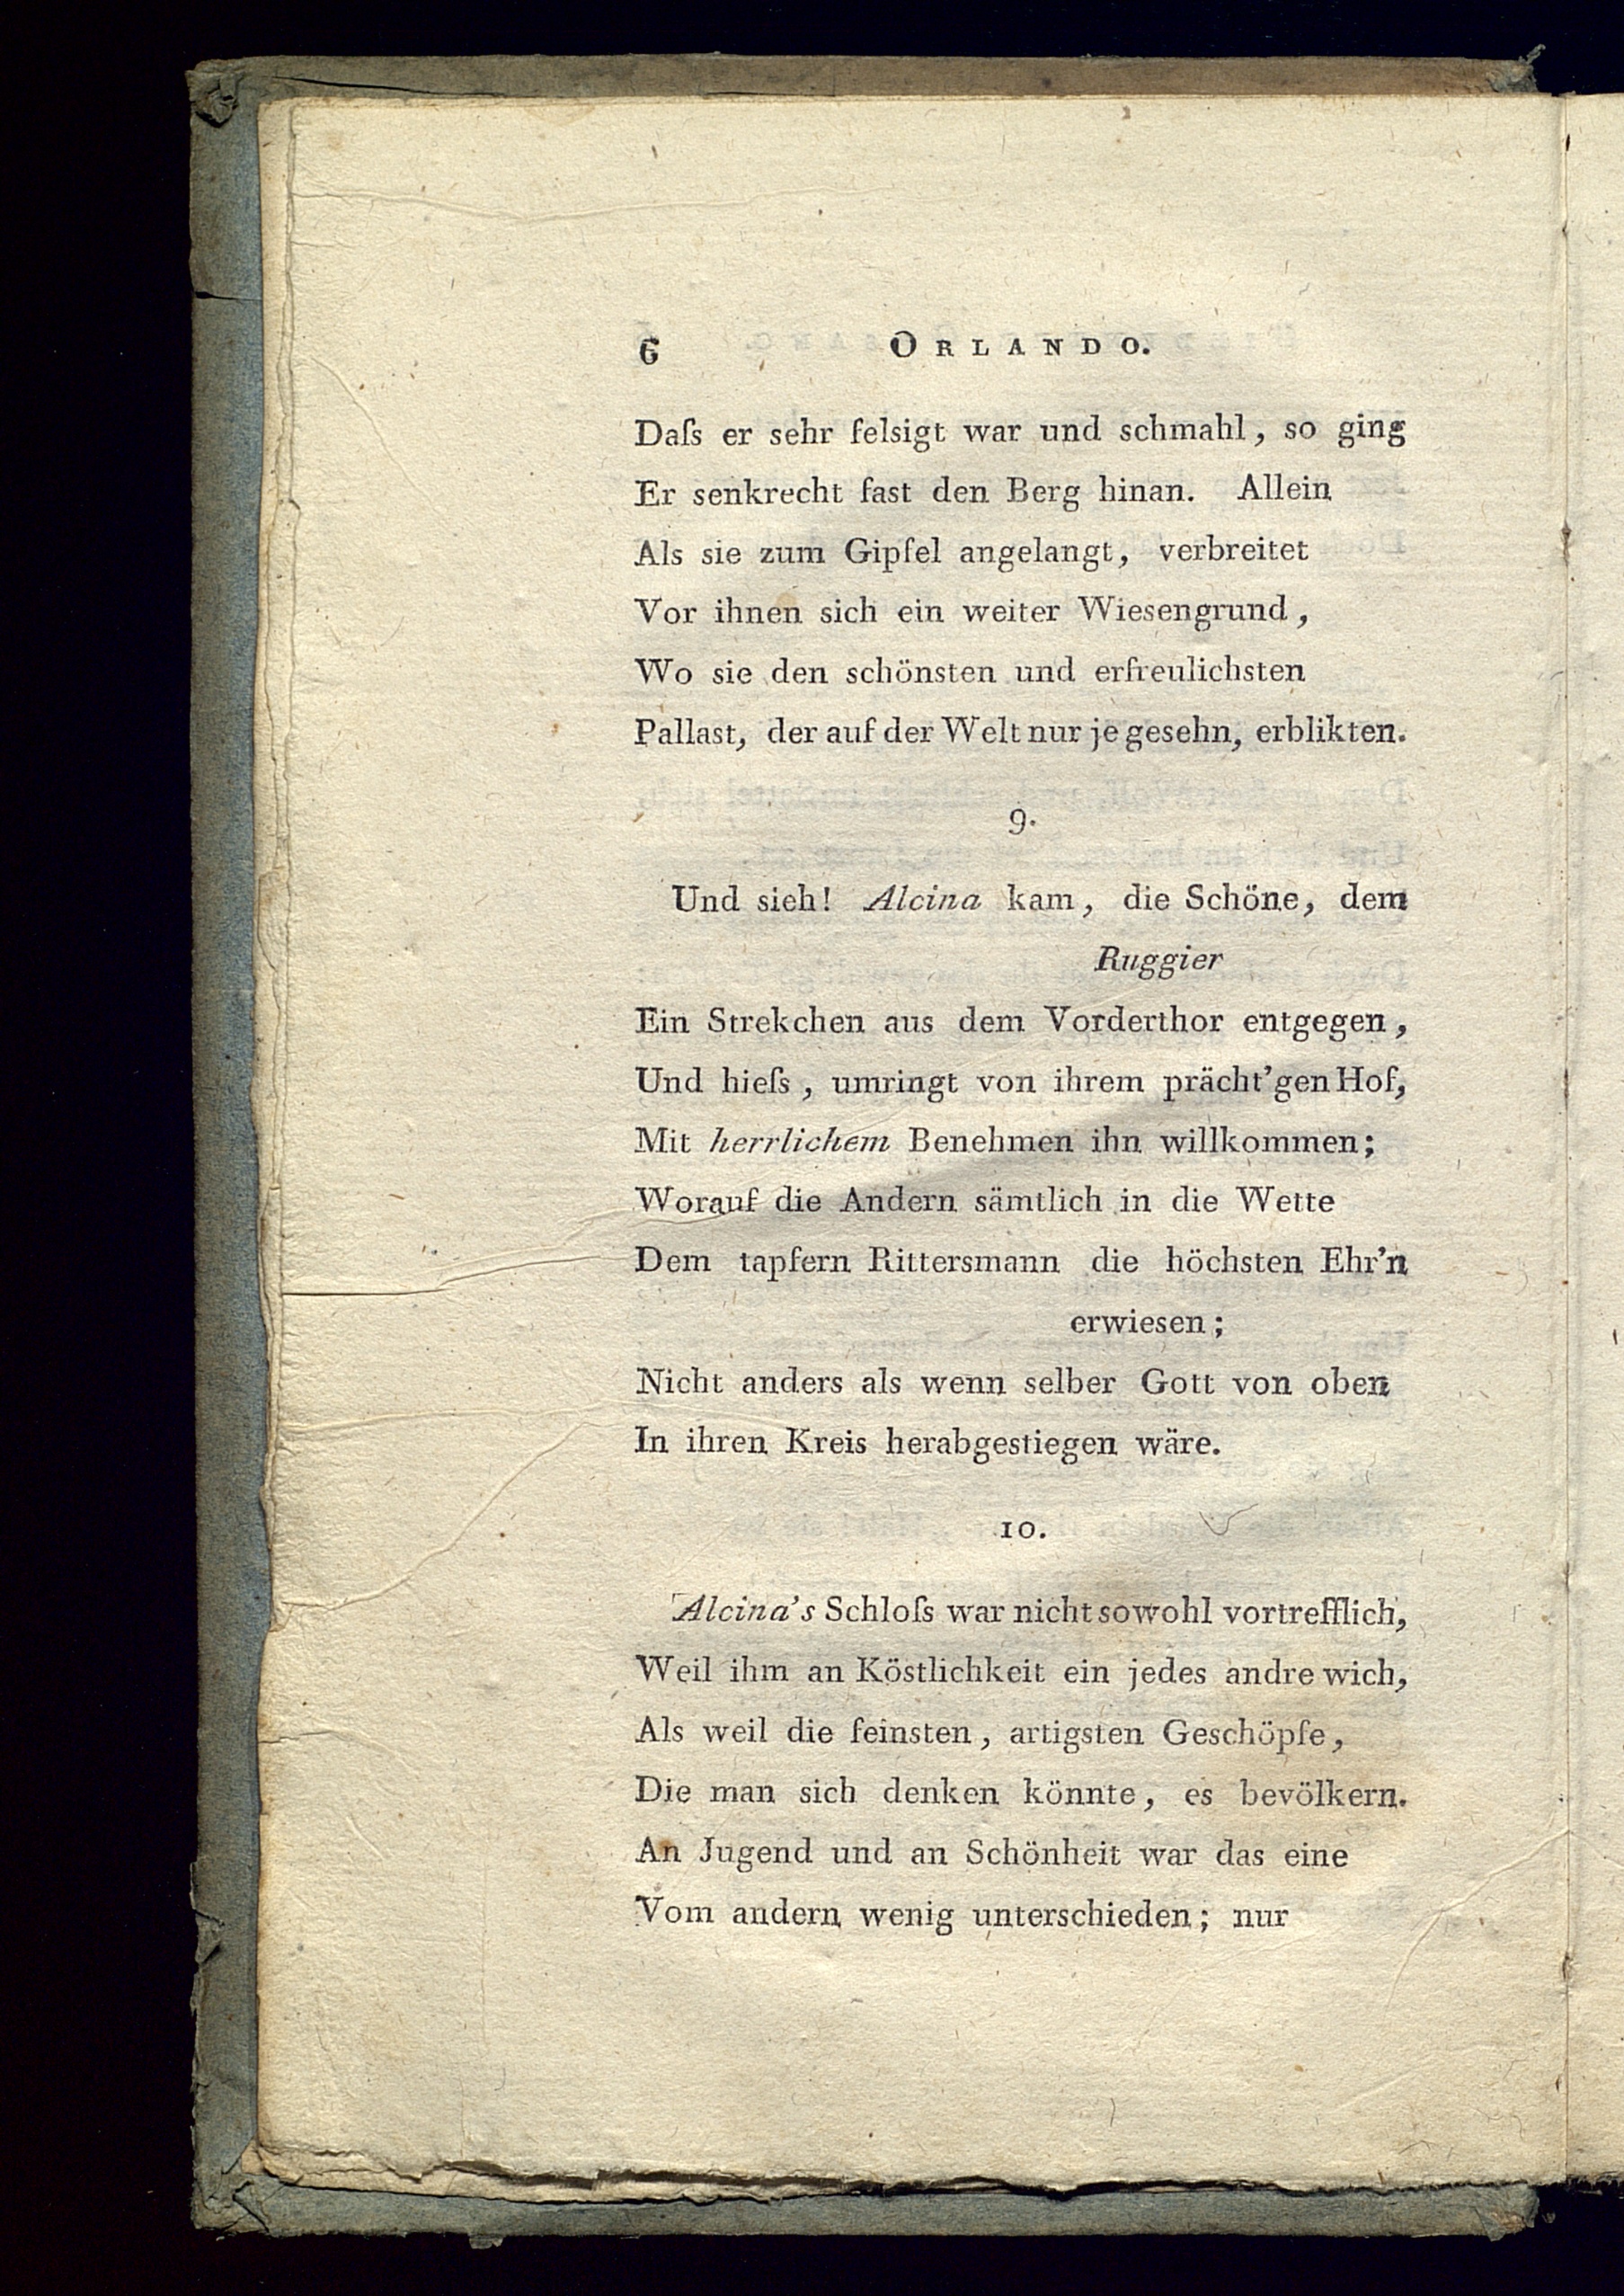 6 ORLANDO.
Daſs er sehr felsigt war und schmahl, so ging
Er senkrecht fast den Berg hinan. Allein
Als sie zum Gipfel angelangt, verbreitet
Vor ihnen sich ein weiter Wiesengrund,
Wo sie den schönsten und erfreulichsten
Pallast, der auf der Welt nur je gesehn, erblikten.
9.
Und sieh! Alcina kam, die Schöne, dem
Ruggier
Ein Strekchen aus dem Vorderthor entgegen,
Und hieſs, umringt von ihrem prächt'gen Hof,
Mit herrlichem Benehmen ihn willkommen;
Worauf die Andern sämtlich in die Wette
Dem tapfern Rittersmann die höchsten Ehr'n
erwiesen;
Nicht anders als wenn selber Gott von oben
In ihren Kreis herabgestiegen wäre.
10.
Alcina's Schloſs war nicht sowohl vortrefflich,
Weil ihm an Köstlichkeit ein jedes andre wich,
Als weil die feinsten, artigsten Geschöpfe,
Die man sich denken könnte, es bevölkern.
An Jugend und an Schönheit war das eine
Vom andern wenig unterschieden; nur